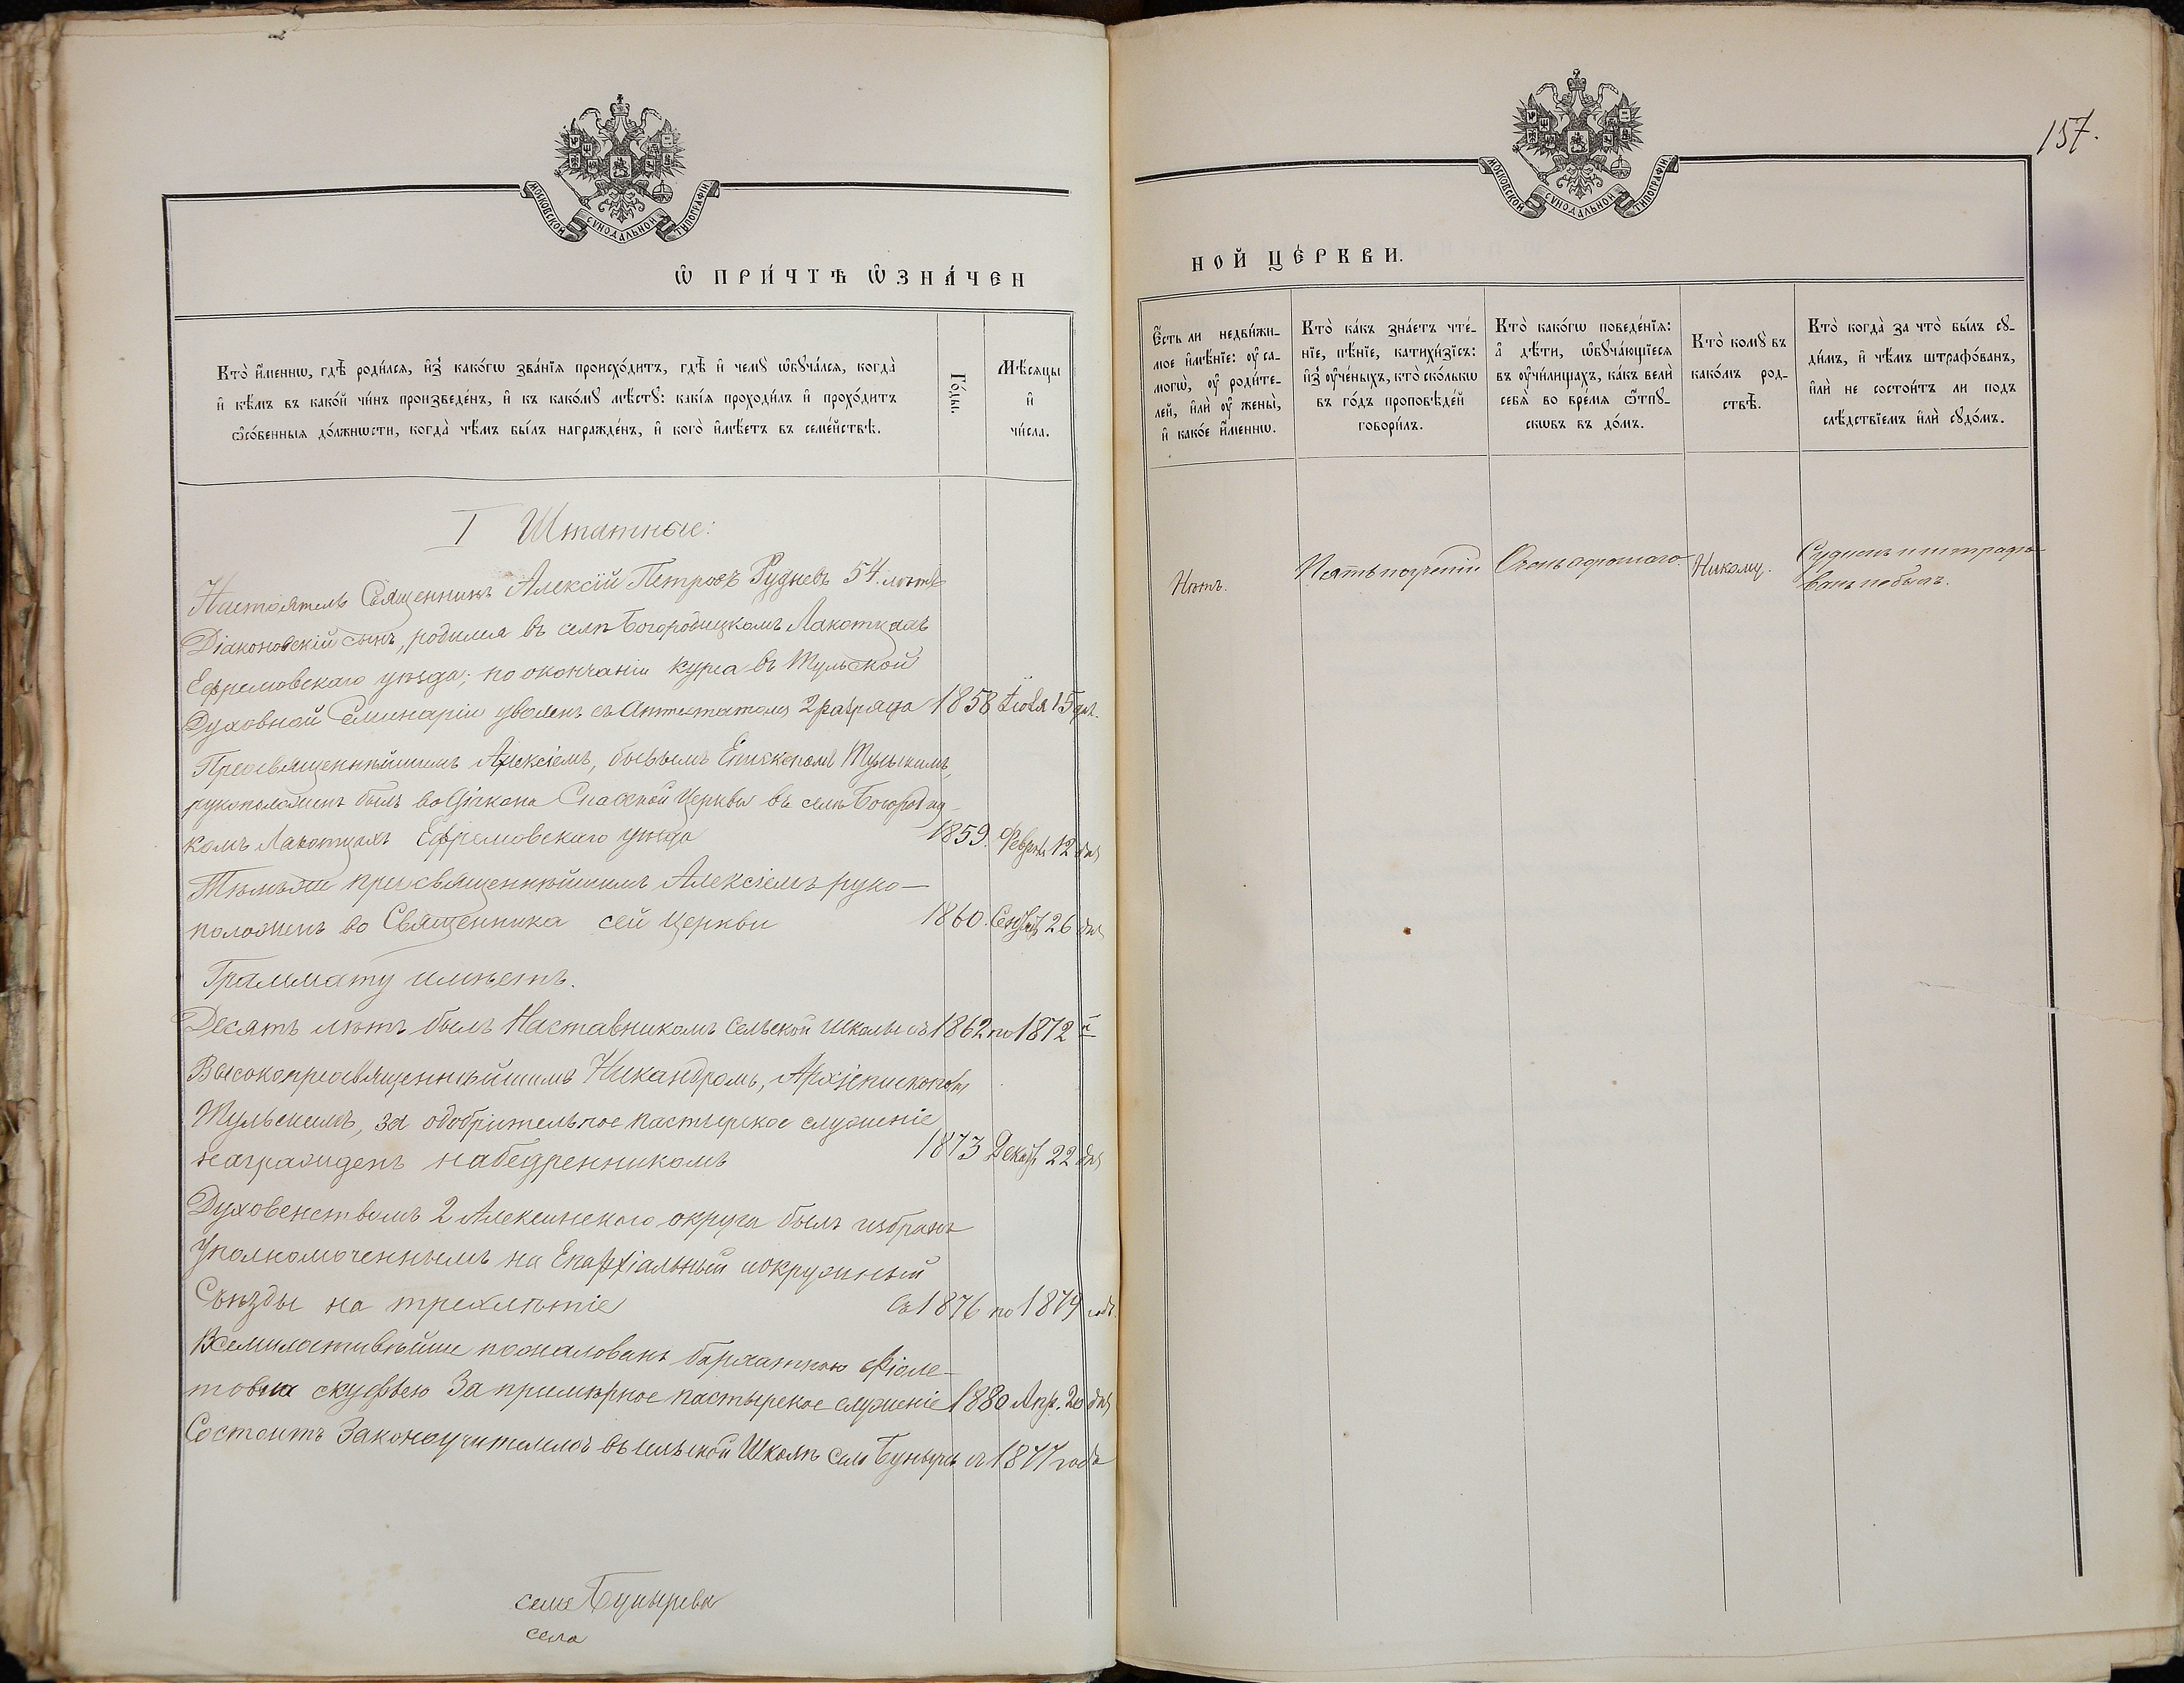 МОСКОВСКОЙ СѴНОДАЛЬНОЙ ТИПОГРАФІИ
Ѡ ПРИ́ЧТѢ Ѡ҆ЗНА́ЧЕН
Кто̀ и҆́менно, гдѣ̀ роди́лся, и҆з̾ како́гѡ зва́нїѧ происхо́дитъ, гдѣ̀ и҆ чемꙋ̀ ѡ҆бꙋча́лся, когда̀
и҆ кѣ́мъ въ како́й чи́нъ произведе́нъ, и҆ къ како́мꙋ мѣ́стꙋ: какі́ѧ проходи́лъ и҆ прохо́дитъ
ѻ҆со́бенныѧ до́лжнѡсти, когда̀ чѣ́мъ бы́лъ награжде́нъ, и҆ кого̀ и҆мѣ́етъ въ семе́йствѣ.
Го́ды.
Мѣ́сѧцы
и҆
чи́сла.
I Штатные:
Настоятель Священникъ Алексій Петровъ Рудневъ 54 лѣтъ
Діаконовскій сынъ, родился въ селѣ Богородицкомъ Локоткахъ
Ефремовскаго уѣзда; по окончаніи курса въ Тульской
Духовной Семинаріи уволенъ съ Аттестатомъ 2 разряда 1858 Іюля 15 дня.
Преосвященнѣйшимъ Алексіемъ, бывшимъ Епископомъ Тульскимъ,
рукоположенъ былъ во Діакона Спасской Церкви въ селѣ Богородиц-
комъ Локоткахъ Ефремовскаго уѣзда 1859. Февр. 12 дня
Тѣмъ же преосвященнѣйшимъ Алексіемъ руко-
положенъ во Священника сей Церкви 1860. Сентяб. 26 дня
Граммату имѣетъ.
Десять лѣтъ былъ Наставникомъ Сельской Школы съ 1862 по 1872 й
Высокопреосвященнѣйшимъ Никандромъ, Архіепископомъ
Тульскимъ, за одобрительное пастырское служеніе
награжденъ набедренникомъ 1873 Декаб. 22 дня
Духовенствомъ 2 Алексинскаго округа былъ избранъ
Уполномоченнымъ на Епархіальный и окружный
Съѣзды на трехлѣтіе съ 1876 по 1879 годъ.
Всемилостивѣйше пожалованъ бархатною фіоле-
товою скуфьею За примѣрное пастырское служеніе 1880 Апр. 20 дня
Состоитъ Законоучителемъ въ сельской Школѣ Села Бунырева съ 1877 года
селе Бунырева
села
157.
МОСКОВСКОЙ СѴНОДАЛЬНОЙ ТИПОГРАФІИ
НОЙ ЦЕ́РКВИ.
Є҆́сть ли недви́жи-
мое и҆мѣ́нїе: оу҆ са-
могѡ̀, оу҆ роди́те-
лей, и҆лѝ оу҆ жены̀,
и҆ како́е и҆́менно.
Кто̀ ка́къ зна́етъ чте́-
нїе, пѣ́нїе, катихи́зїсъ:
и҆з̾ оу҆че́ныхъ, кто̀ ско́лькѡ
въ го́дъ проповѣ́дей
говори́лъ.
Кто̀ како́гѡ поведе́нїѧ:
а҆ дѣ́ти, ѡ҆бꙋча́ющїеся
въ оу҆чи́лищахъ, ка́къ велѝ
себѧ̀ во вре́мѧ ѿпꙋ-
скѡвъ въ до́мъ.
Кто̀ комꙋ̀ въ
како́мъ род-
ствѣ̀.
Кто̀ когда̀ за что̀ бы́лъ сꙋ-
ди́мъ, и҆ чѣ́мъ штрафо́ванъ,
и҆лѝ не состои́тъ ли подъ
слѣ́дствїемъ и҆лѝ сꙋдо́мъ.
Нѣтъ.
Пять поученій
Очень хорошаго.
Никому.
Судимъ и штрафо-
ванъ не былъ.